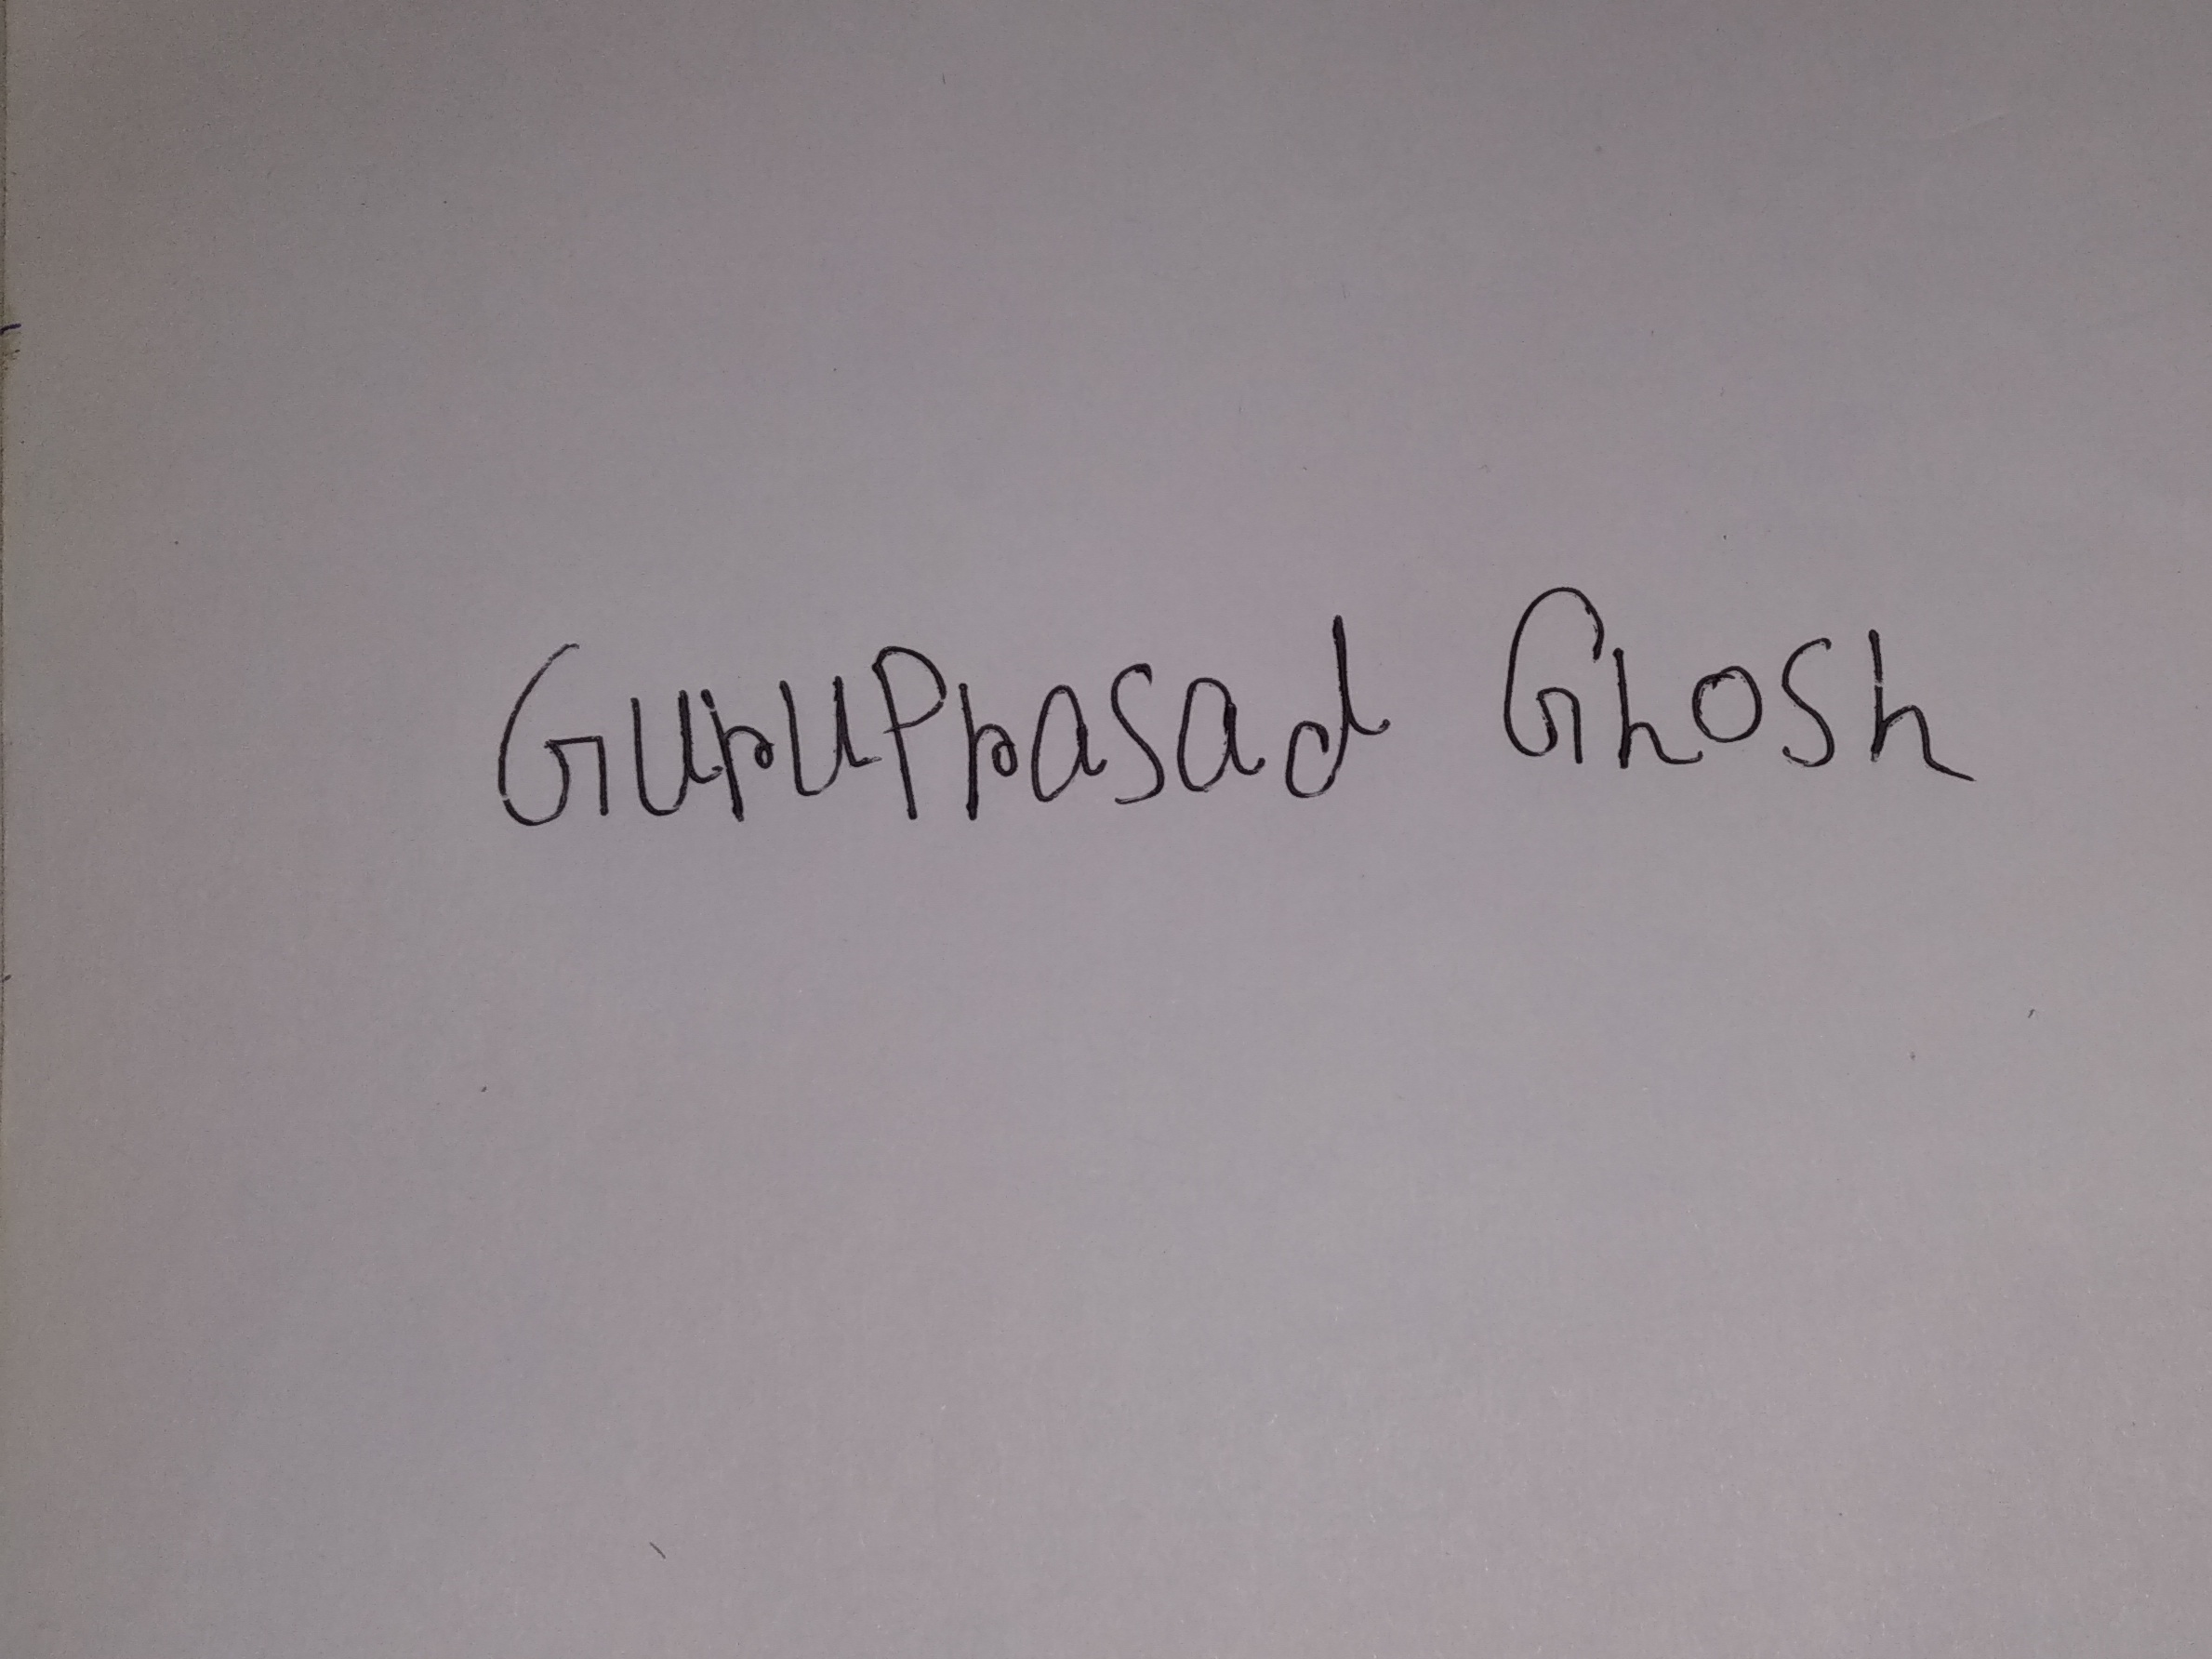 GuruPrasad Ghosh